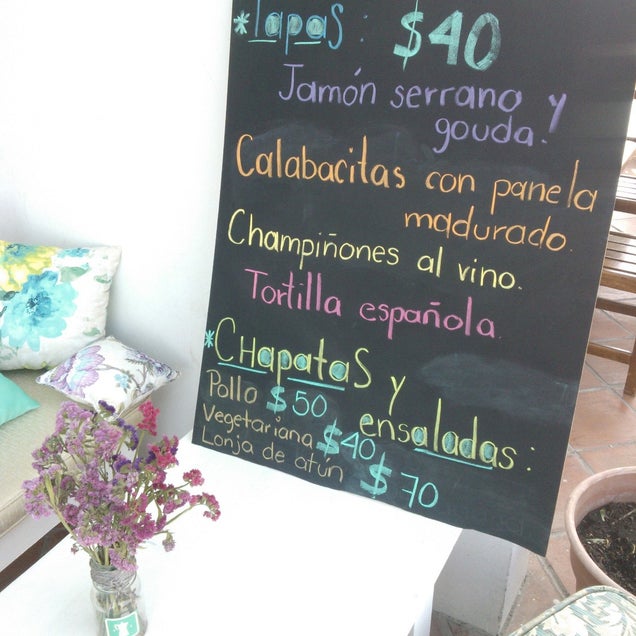 *Tapas: $40
Jamón serrano y
gouda.
Calabacitas con panela
madurado.
Champiñones al vino.
Tortilla española
*CHapatas y
ensaladas:
Pollo $50
Vegetariana $40
Lonja de atún $70